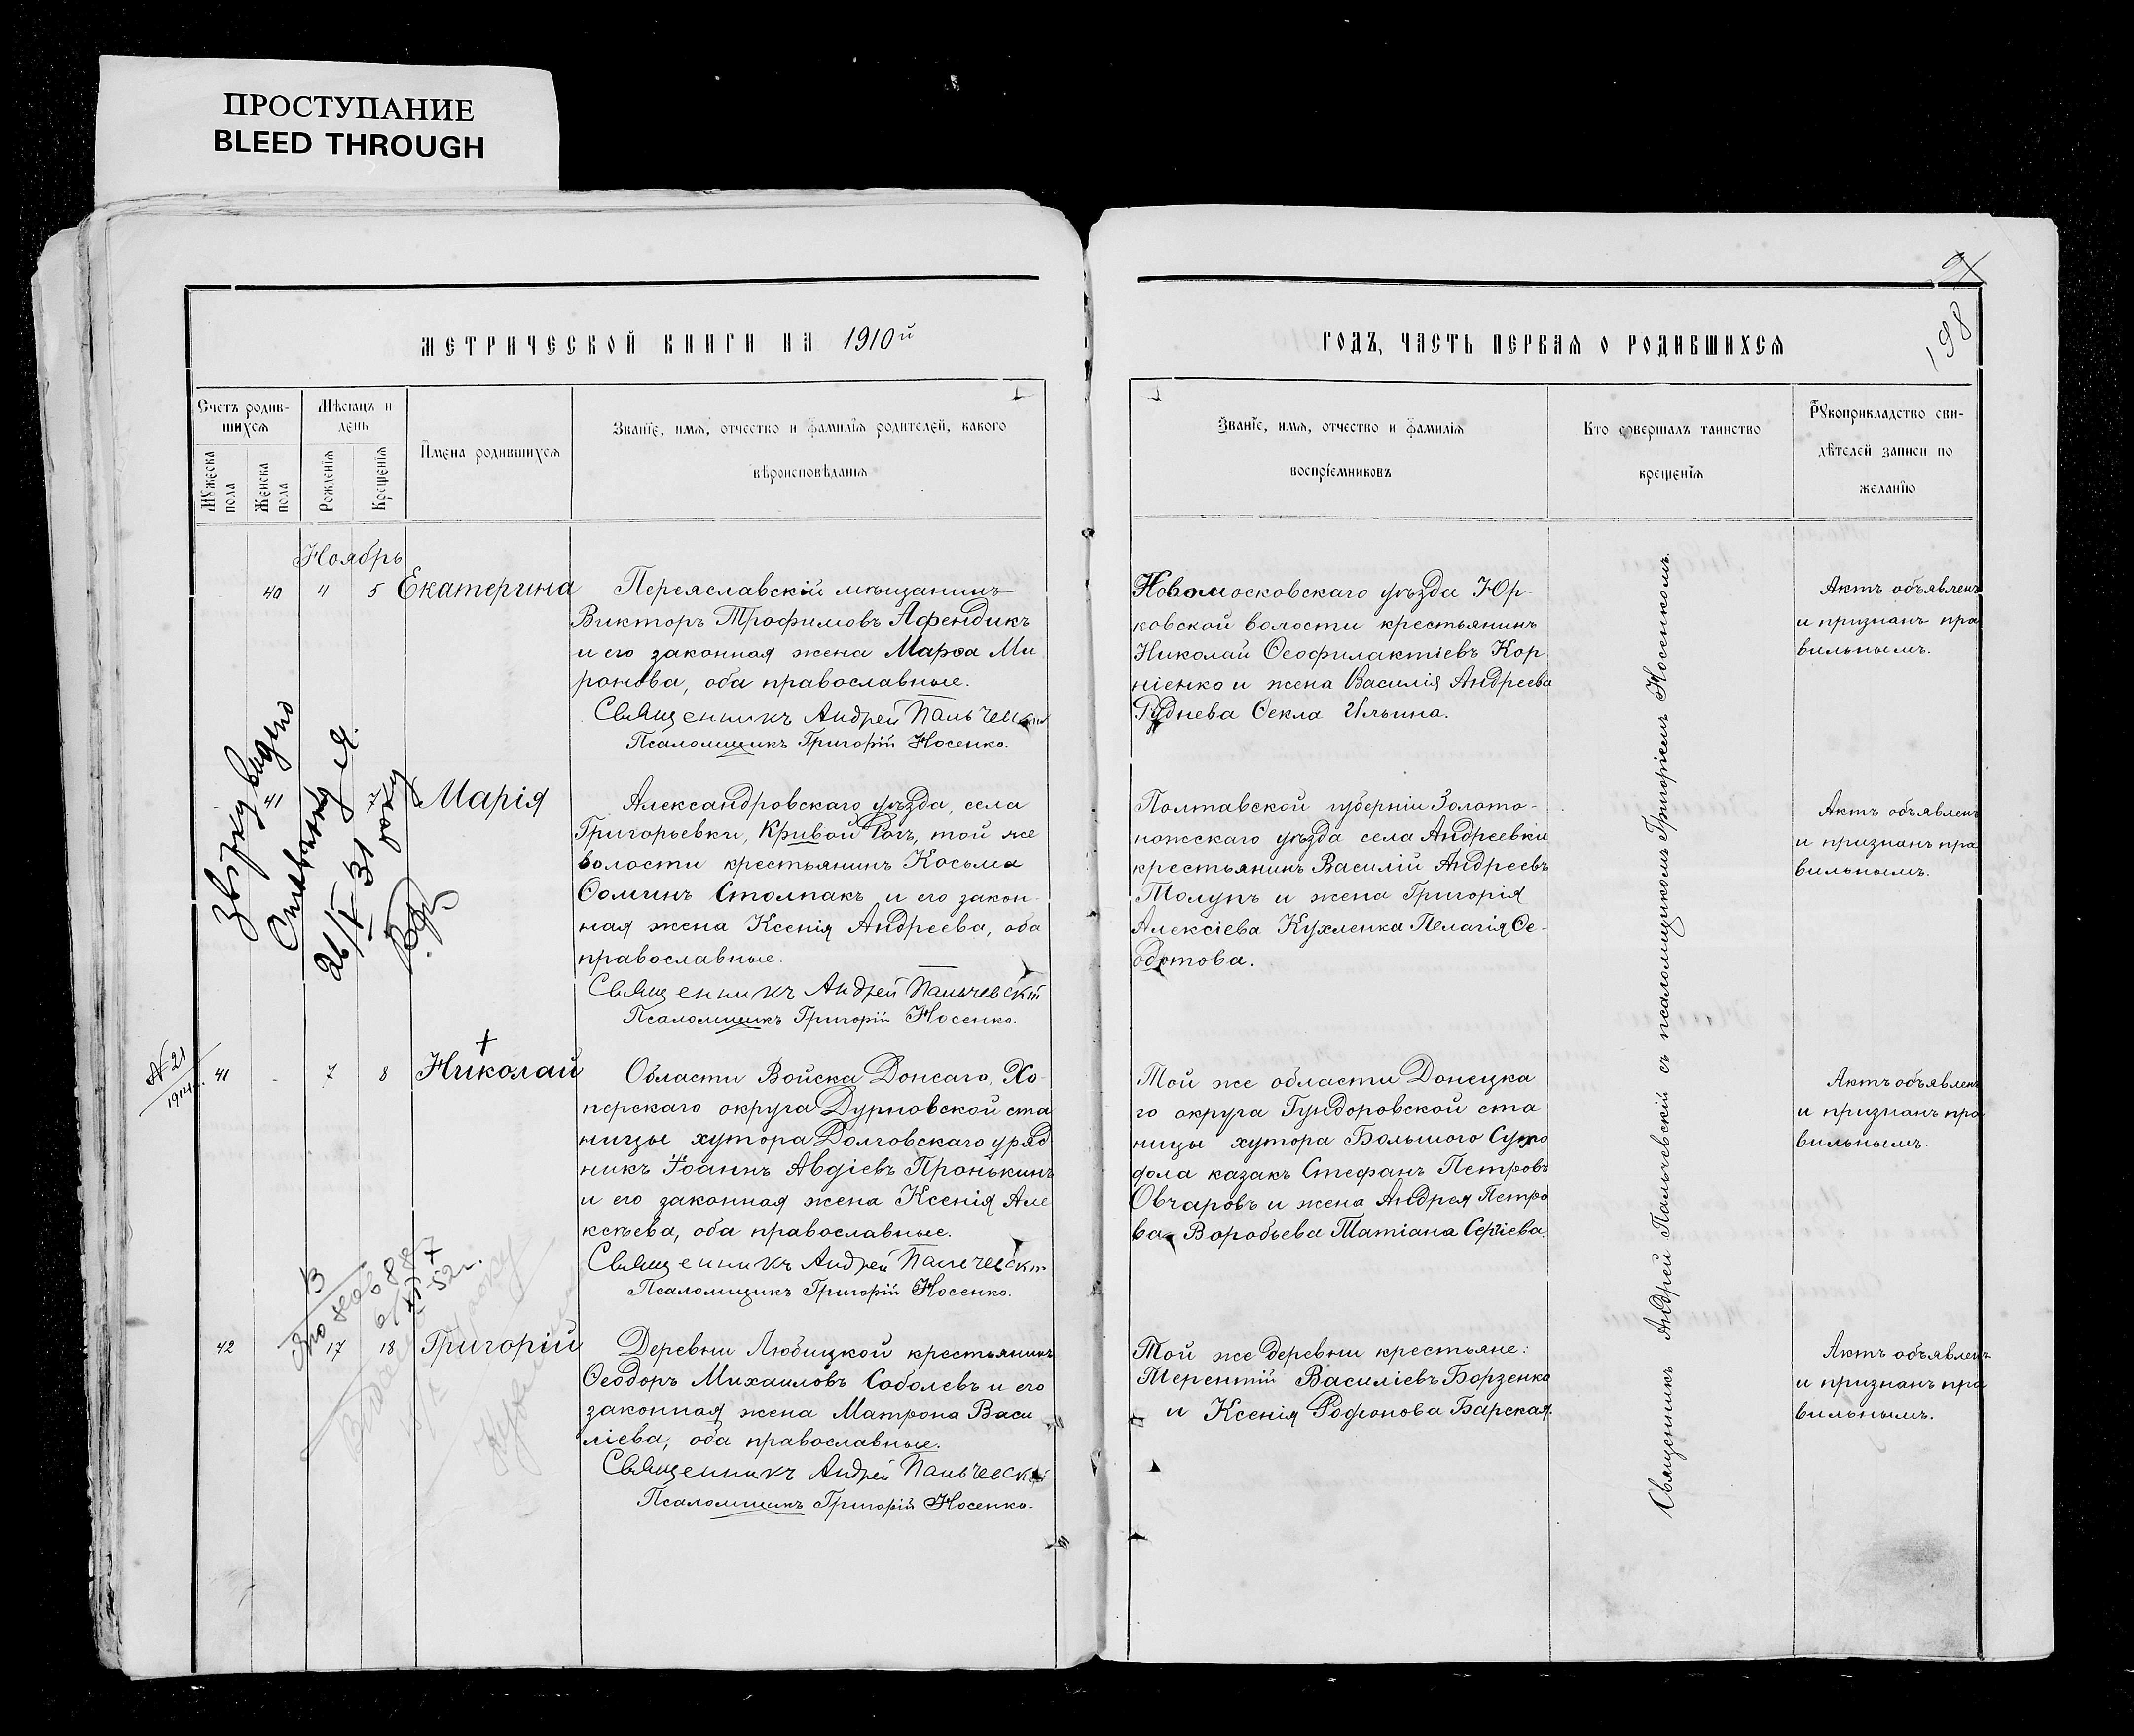 ПРОСТУПАНИЕ
BLEED THROUGH
198
МЕТРИЧЕСКОЙ КНИГИ НА 1910й
ГОДЪ, ЧАСТЬ ПЕРВАЯ О РОДИВШИХСЯ
Счетъ родив-
шихся
Мужеска пола
Женска пола
Мѣсяцъ и
день
Рожденія
Крещенія
Имена родившихся
Званіе, имя, отчество и фамилія родителей, какого
вѣроисповѣданія
Званіе, имя, отчество и фамилія
воспріемниковъ
Кто совершалъ таинство
крещенія
Рукоприкладство сви-
дѣтелей записи по
желанію
Ноябрь
40 4 5 Екатерина
Переяславскій мѣщанинъ
Викторъ Трофимовъ Афендикъ
и его законная жена Марѳа Ми
ронова, оба православные.
Священникъ Андрей Пальчевскій
Псаломщикъ Григорій Носенко.
Новомосковскаго уѣзда Юр-
ковской волости крестьянинъ
Николай Ѳеофилактіевъ Кор
ніенко и жена Василія Андреева
Руднева Ѳекла Ильина.
Актъ объявленъ
и признанъ пра
вильнымъ.
41 7 Марія
Александровскаго уѣзда, села
Григорьевки, Кривой Рогъ, той же
волости крестьянинъ Косьма
Ѳоминъ Столпакъ и его закон-
ная жена Ксенія Андреева, оба
православные.
Священникъ Андрей Пальчевскій
Псаломщикъ Григорій Носенко.
Полтавской губерніи Золото-
ножскаго уѣзда села Андреевки
крестьянинъ Василій Андреевъ
Толупъ и жена Григорія
Алексіева Кухленка Пелагія Ѳе-
одотова.
Актъ объявленъ
и признанъ пра
вильнымъ.
26/V 31 року
№ 21
1914г.
41 - 7 8 Николай
Области Войска Донсаго, Хо-
перскаго округа Дурновской ста
ницы хутора Долговскаго уряд
никъ Іоаннъ Авдіевъ Пронькинъ
и его законная жена Ксенія Але
ксѣева, оба православные.
Священникъ Андрей Пальчевскій
Псаломщикъ Григорій Носенко.
Той же области Донецка
го округа Гундоровской ста
ницы хутора Большого Сухо
дола казакъ Стефанъ Петровъ
Овчаровъ и жена Андрея Петро
ва Воробьева Татіана Сергіева.
Актъ объявленъ
и признанъ пра
вильнымъ.
42 17 18 Григорій
Деревни Любицкой крестьянинъ
Ѳеодоръ Михаиловъ Соболевъ и его
законная жена Матрона Васи
ліева, оба православные.
Священникъ Андрей Пальчевскій
Псаломщикъ Григорій Носенко.
Той же деревни крестьяне:
Терентій Василіевъ Борзенко
и Ксенія Родіонова Барская.
Актъ объявленъ
и признанъ пра
вильнымъ.
Священникъ Андрей Пальчевскій съ псаломщикомъ Григоріемъ Носенкомъ.